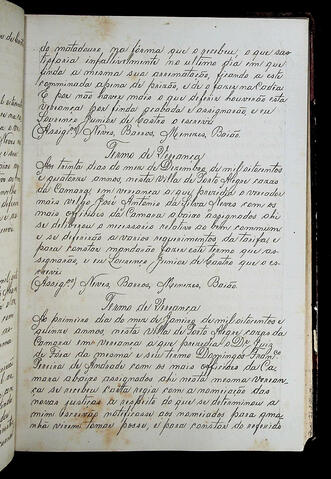 do matadouro, na forma que o recebeu, o que sas-
tisfaria infalivelmente no ultimo dia em que
finda a mesma sua arrematação, ficando a este
comminada a pena de prizão, e de o fazer na Cadia
E por não haver mais o que deferir houverão esta
vereança por finda e acabada e assignarão, e eu
Lourenço Junior de Castro o escrevi
(Assig.ºˢ) Neves, Barros, Menezes, Baião.
Termo de Vereança
Aos trinta dias do mez de Dezembro de mil oitocentos
e quatorze annos, nesta Villa de Porto Alegre cazas
da Camara em vereança a que prezidio o vereador
mais velho José Antonio da Silva Neves com os
mais officiaes da Camara abaixo assignados ahi
se deliberou o necessario relativo ao bem commum
e se deferirão a varios requerimentos da tarifa, e
para constar mandarão fazer este termo que as-
signarão, e eu Lourenço Junior de Castro que o es-
crevi
(Assig.ºˢ) Neves, Barros, Menezes, Baião.
Termo de Vereança
Ao primeiro dia do mez de Janeiro de mil oitocentos e
quinze annos, nesta Villa de Porto Alegre cazas da
Camara em vereança a que prezidio o Dr. Juiz
de Fora da mesma e seu termo Domingos Fran.co
Pereira de Andrade com os mais officiaes da Ca-
mara abaixo assignados ahi nesta mesma verean-
ça se recebeu Carta regia com a nomiação das
novas justiças a respeito do que se determinou a
mim Escrivão notificasse aos nomiados para ama-
nhã virem tomar posse, e para constar do referido